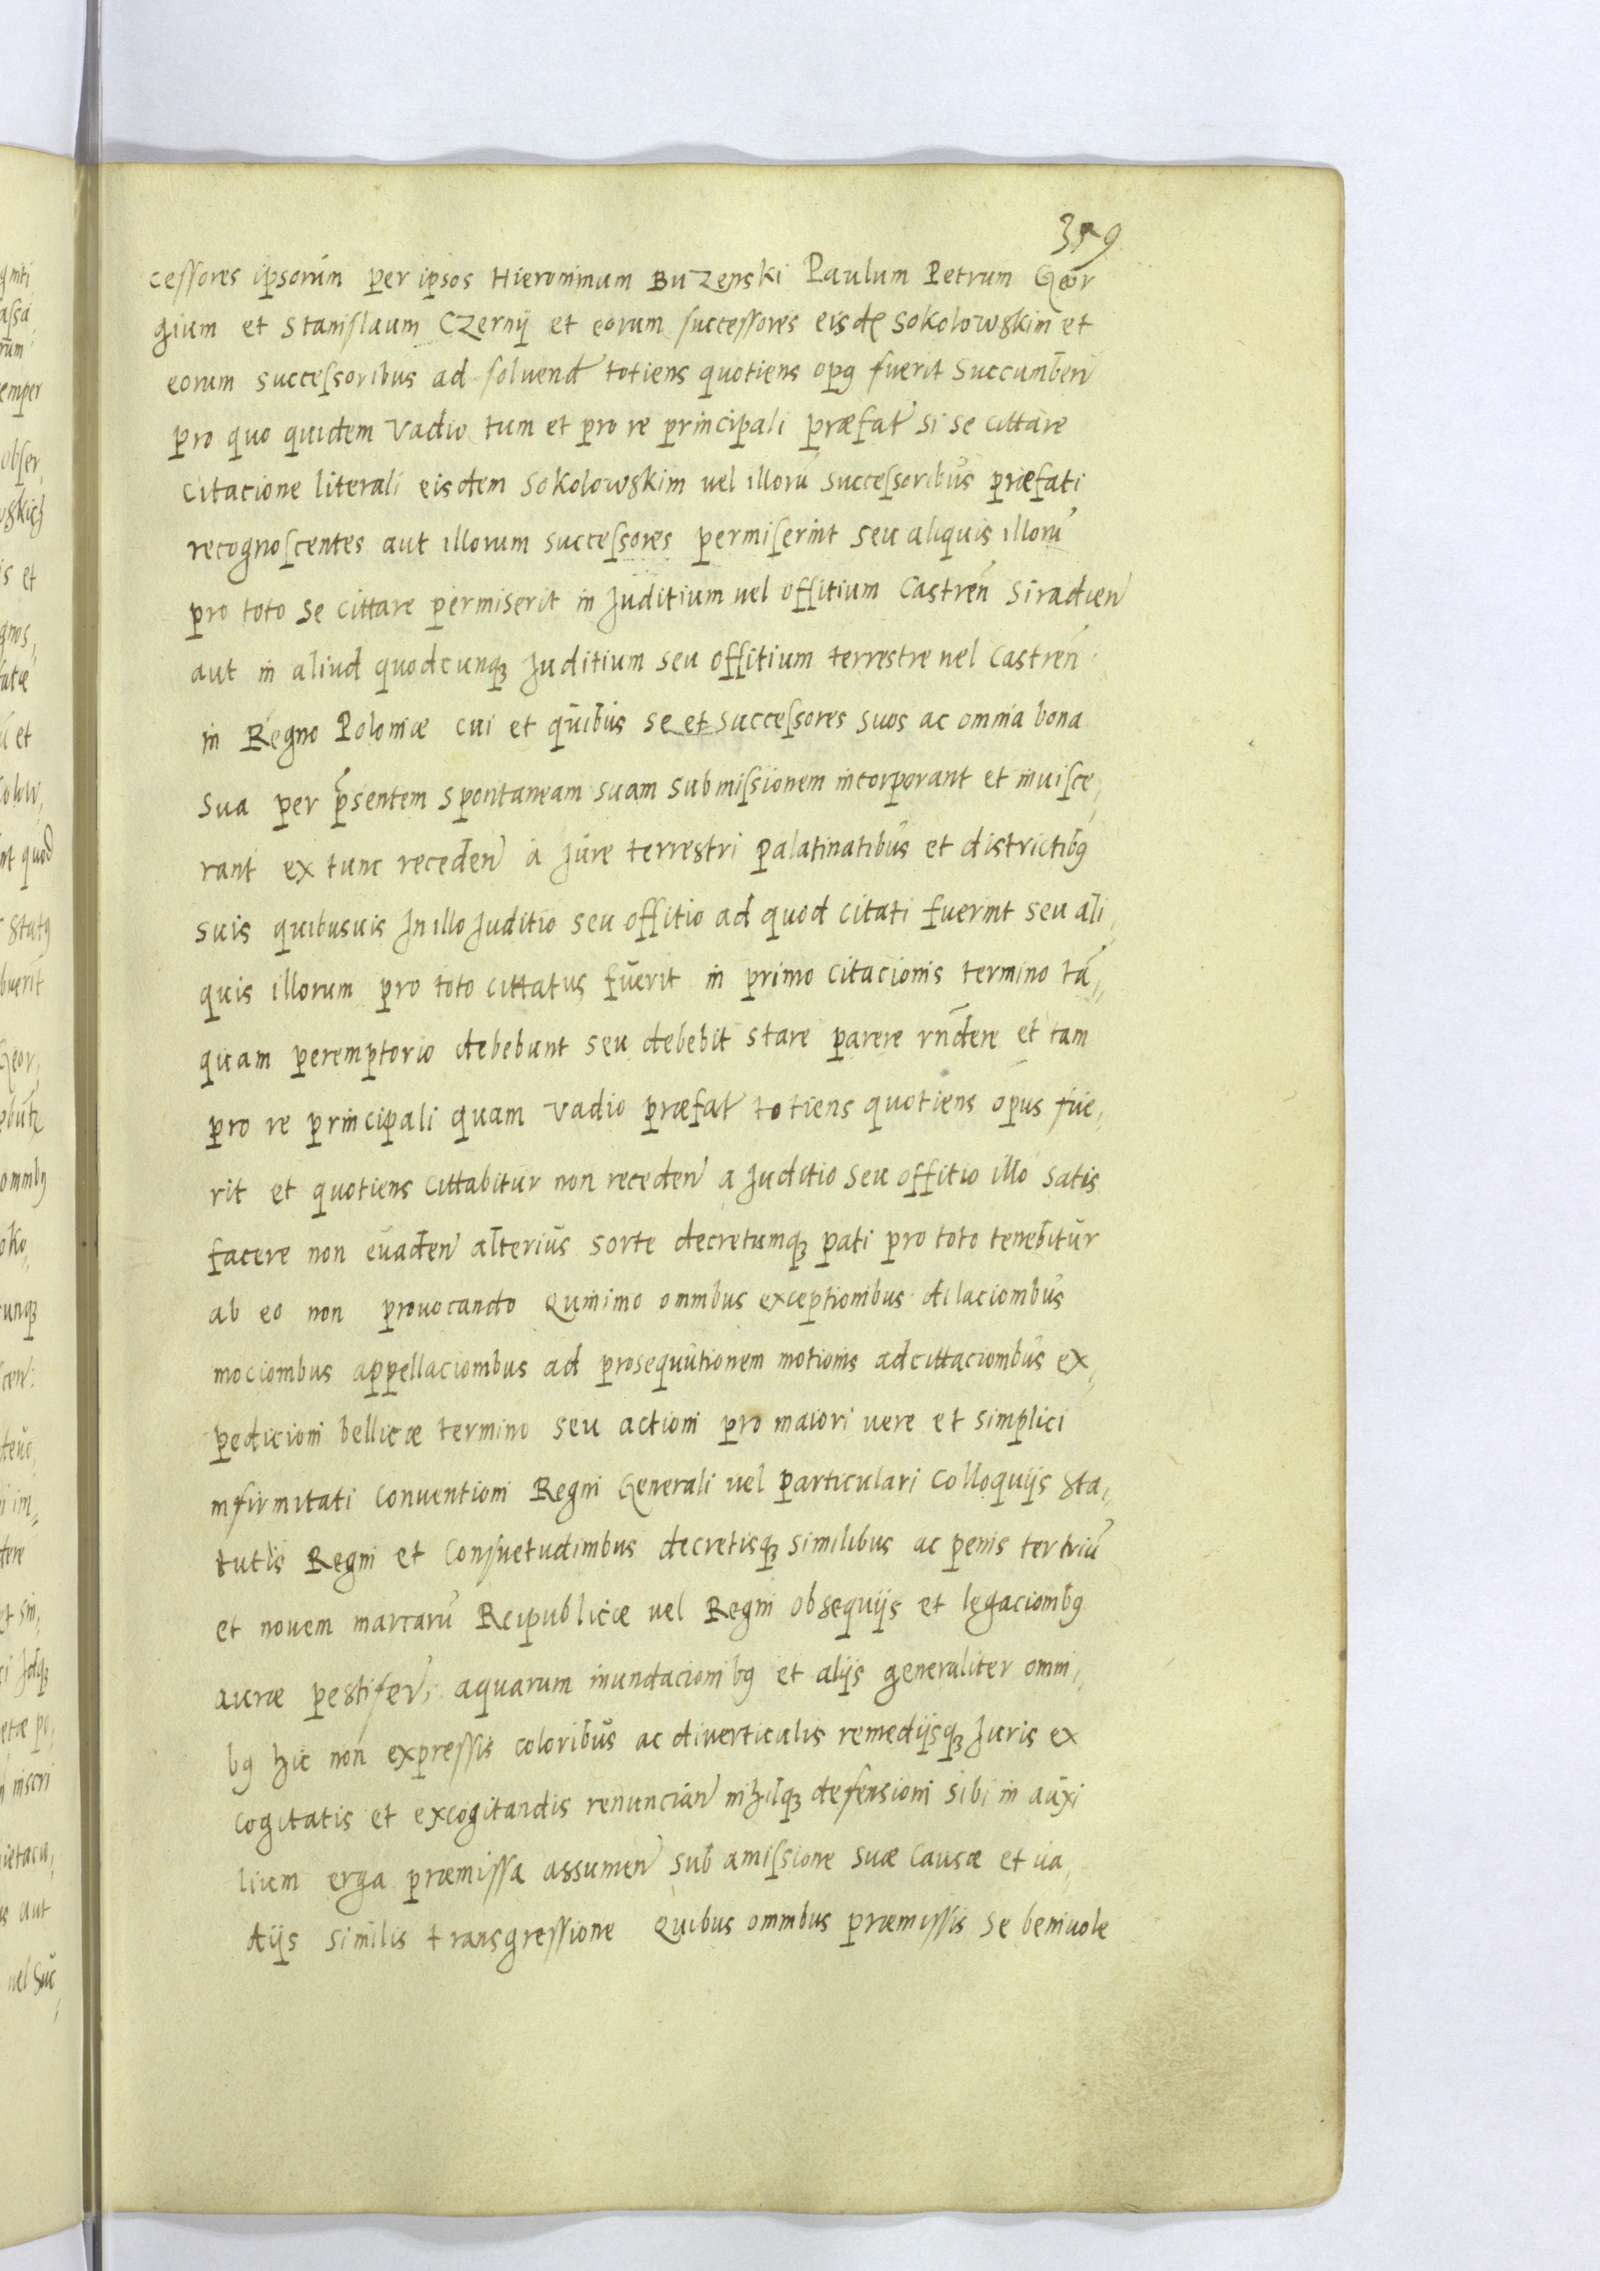 cessores ipsorum per ipsos Hieronimum Buzenski Paulum Petrum Geor
gium et Stanislaum Czernij et eorum successores eisdē Sokolowskim et
eorum successoribus ad soluend totiens quotiens opꝰ fuerit Succumben
pro quo quidem Vadio tum et pro re principali præfat si se cittare
citacione literali eisdem Sokolowskim uel illorū successoribus præfati
recognoscentes aut illorum successores permiserint seu aliquis illorū
pro toto se cittare permiserit in Juditium uel offitium Castren̄ Siradien
aut in aliud quodcunqꝫ Juditium seu offitium terrestre uel Castren̄
in Regno Poloniæ cui et quibus se et successores suos ac omnia bona
sua per p̄sentem spontaneam suam submissionem incorporant et inuisce,
rant ex tunc receden à Jure terrestri Palatinatibus et districtibꝰ
suis quibusuis In illo Juditio seu offitio ad quod citati fuerint seu ali,
quis illorum pro toto cittatus fuerit in primo citacionis termino tā,,
quam peremptorio debebunt seu debebit stare parere rn̄dere et tam
pro re principali quam Vadio præfat totiens quotiens opus fue,
rit et quotiens cittabitur non receden a Juditio seu offitio illo satis
facere non euaden alterius sorte decretumqꝫ pati pro toto tenebitur
ab eo non prouocando Quinimo omnibus exceptionibus dilacionibus
mocionibus appellacionibus ad prosequutionem motionis adcittacionibus ex,
pedicioni bellicæ termino seu actioni pro maiori uere et simplici
infirmitati Conuentioni Regni Generali uel particulari Colloquijs sta,
tutis Regni et Consuetudinibus decretisqꝫ similibus ac penis ter triū
et nouem marcarū Reipublicæ uel Regni obsequijs et legacionibꝰ
auræ pestifer, aquarum inundacionibꝰ et alijs generaliter omni,
bꝰ hic non expressis coloribus ac diuerticulis remedijsqꝫ Juris ex
cogitatis et excogitandis renuncian nihilqꝫ defensioni sibi in auxi
lium erga præmissa assumen sub amissione suæ causæ et ua,
dijs similis transgressione Quibus omnibus præmissis se beniuole